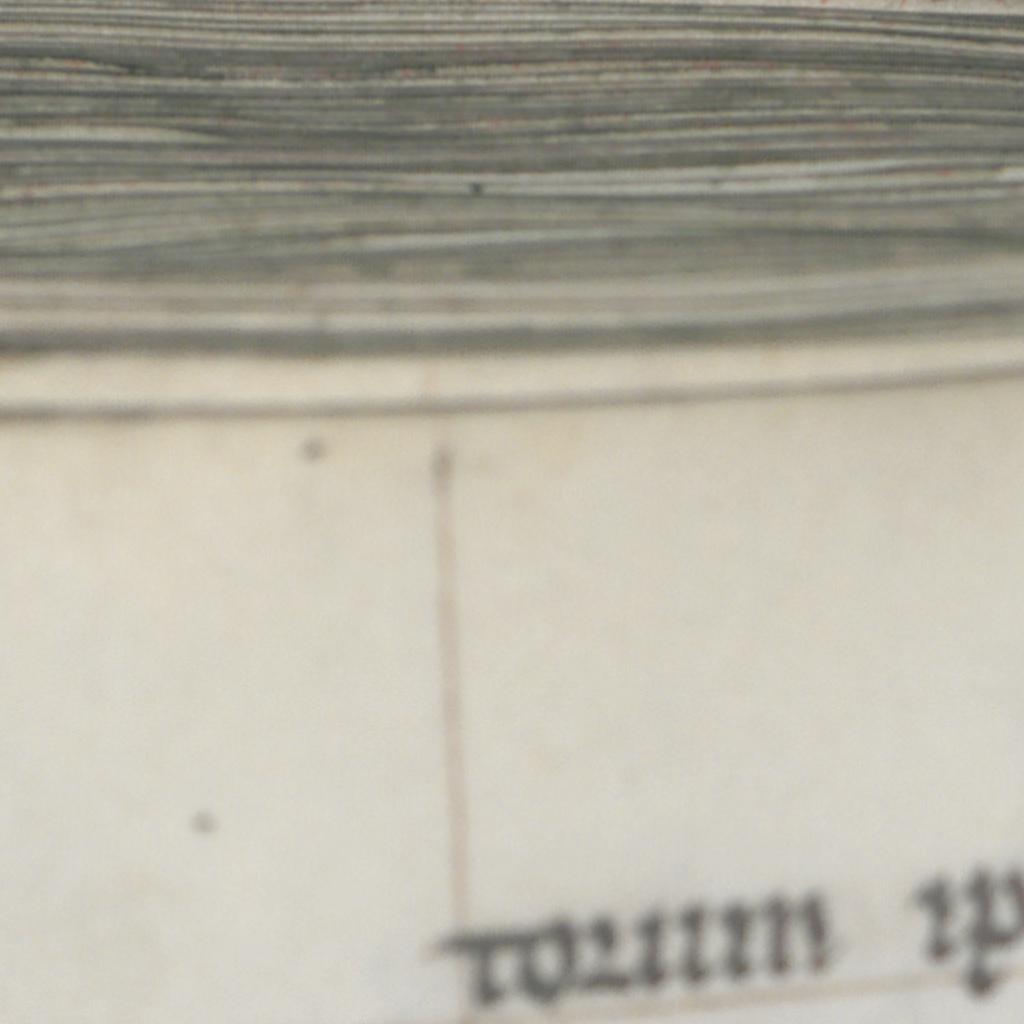 toꝛum ip